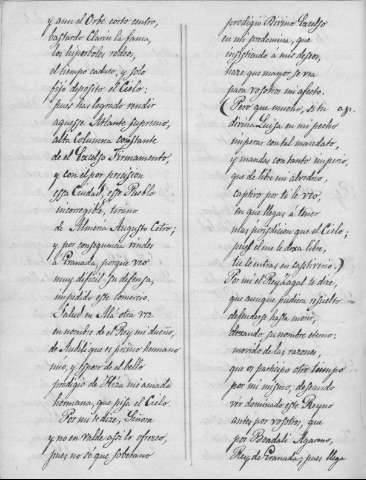 y aun el Orbe corto centro,
bastardo Clarin la fama,
los hiperboles rodeo,
el tiempo caduco, y solo
fijo deposito el Cielo:
pues has logrado rendir
aquesse Atlante supremo,
alta Columna constante
de el Excelso Firmamento,
y con el por precission
essa Ciudad, esse Pueblo
incorregible, tirano
de Almena Augusta
y por consequencia rindes
a Granada, porque veo
muy dificil su defensa,
impedido este comercio.
Salud en Alá otra vez
en nombre de el Rey mi dueño,
de Audalá que es primo hermano
mio, y esposo de el bello
prodigio de mi amada
hermana, que pisa el Cielo
Por mi te dize, Señora
y no en valde assi te ofrezco,
pues no sé que soberano
prodigio Divino Excelso
en mi predomina, que
insistiendo á mis deseos,
haze que mayor se vea
para vosotros mi afecto.
(Pero que mucho, si tu ap.
divina Luisa en mi pecho
imperas con tal mandato,
y mandas con tanto imperio,
que de libre mi alvedrio,
captivo por ti le veo,
en que llegas á tener
mas jurisdicion que el Cielo;
pues él me le dexa libre,
tu le entras en captiverio.)
Por mi el Rey te dize,
que aunque pudiera resuelto
defenderse hasta morir,
dexando su nombre eterno:
movido de las razones,
que os participo otro tiempo
por mi mismo, deseando
ver dominado este Reyno
antes por vosotros, que
por Boadali Agareno,
Rey de Granada; pues llega